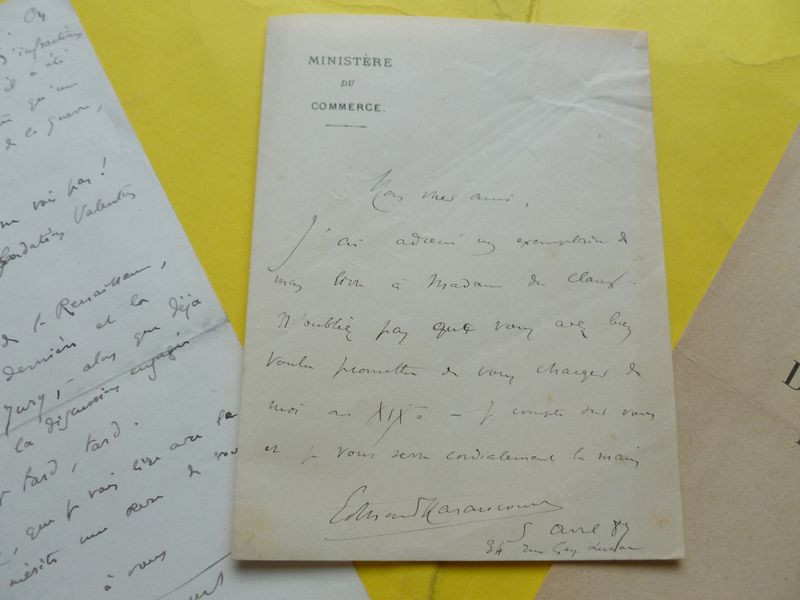 On
d'infractions
il a été
qu'un
de la guerre,
vois pas!
fondation Valentin
de la Renaissance,
dernière et la
Jury, - alors que déjà
la discussion engagée
tard, tard.
que je vais lire avec
mérite une
à vous
MINISTÈRE
DU
COMMERCE.
Mon cher ami,
J'ai adressé un exemplaire de
mon livre à Madame de
N'oubliez pas que vous avez bien
voulu promettre de vous charger de
moi au XIXe – je compte sur vous
et je vous serre cordialement la main
Edmond Haraucourt
5 avril 89
34 rue Gay Lussac